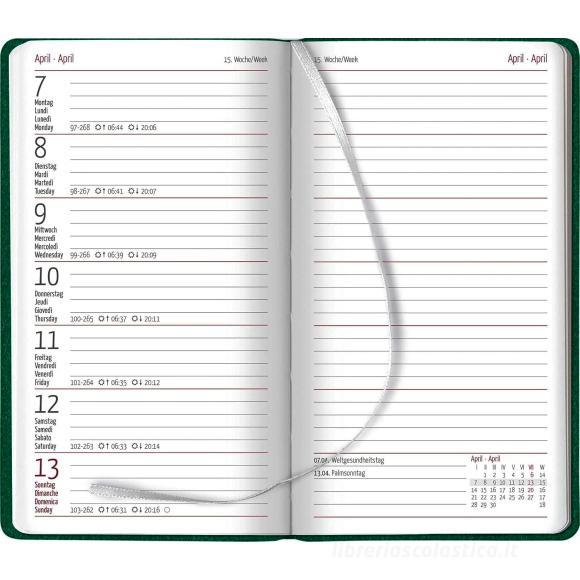 April · April
15. Woche/Week
7
Montag
Lundi
Lunedì
Monday 97-268 06:44 20:06
8
Dienstag
Mardi
Martedì
Tuesday 98-267 06:41 20:07
9
Mittwoch
Mercredi
Mercoledì
Wednesday 99-266 06:39 20:09
10
Donnerstag
Jeudi
Giovedì
Thursday 100-265 06:37 20:11
11
Freitag
Vendredi
Venerdì
Friday 101-264 06:35 20:12
12
Samstag
Samedi
Sabato
Saturday 102-263 06:33 20:14
13
Sonntag
Dimanche
Domenica
Sunday 103-262 06:31 20:16
15. Woche/Week
April · April
07.04. Weltgesundheitstag
13.04. Palmsonntag
April · April
I II III IV V VI VII W
1 2 3 4 5 6 14
7 8 9 10 11 12 13 15
14 15 16 17 18 19 20 16
21 22 23 24 25 26 27 17
28 29 30 18
libreriascolastica.it